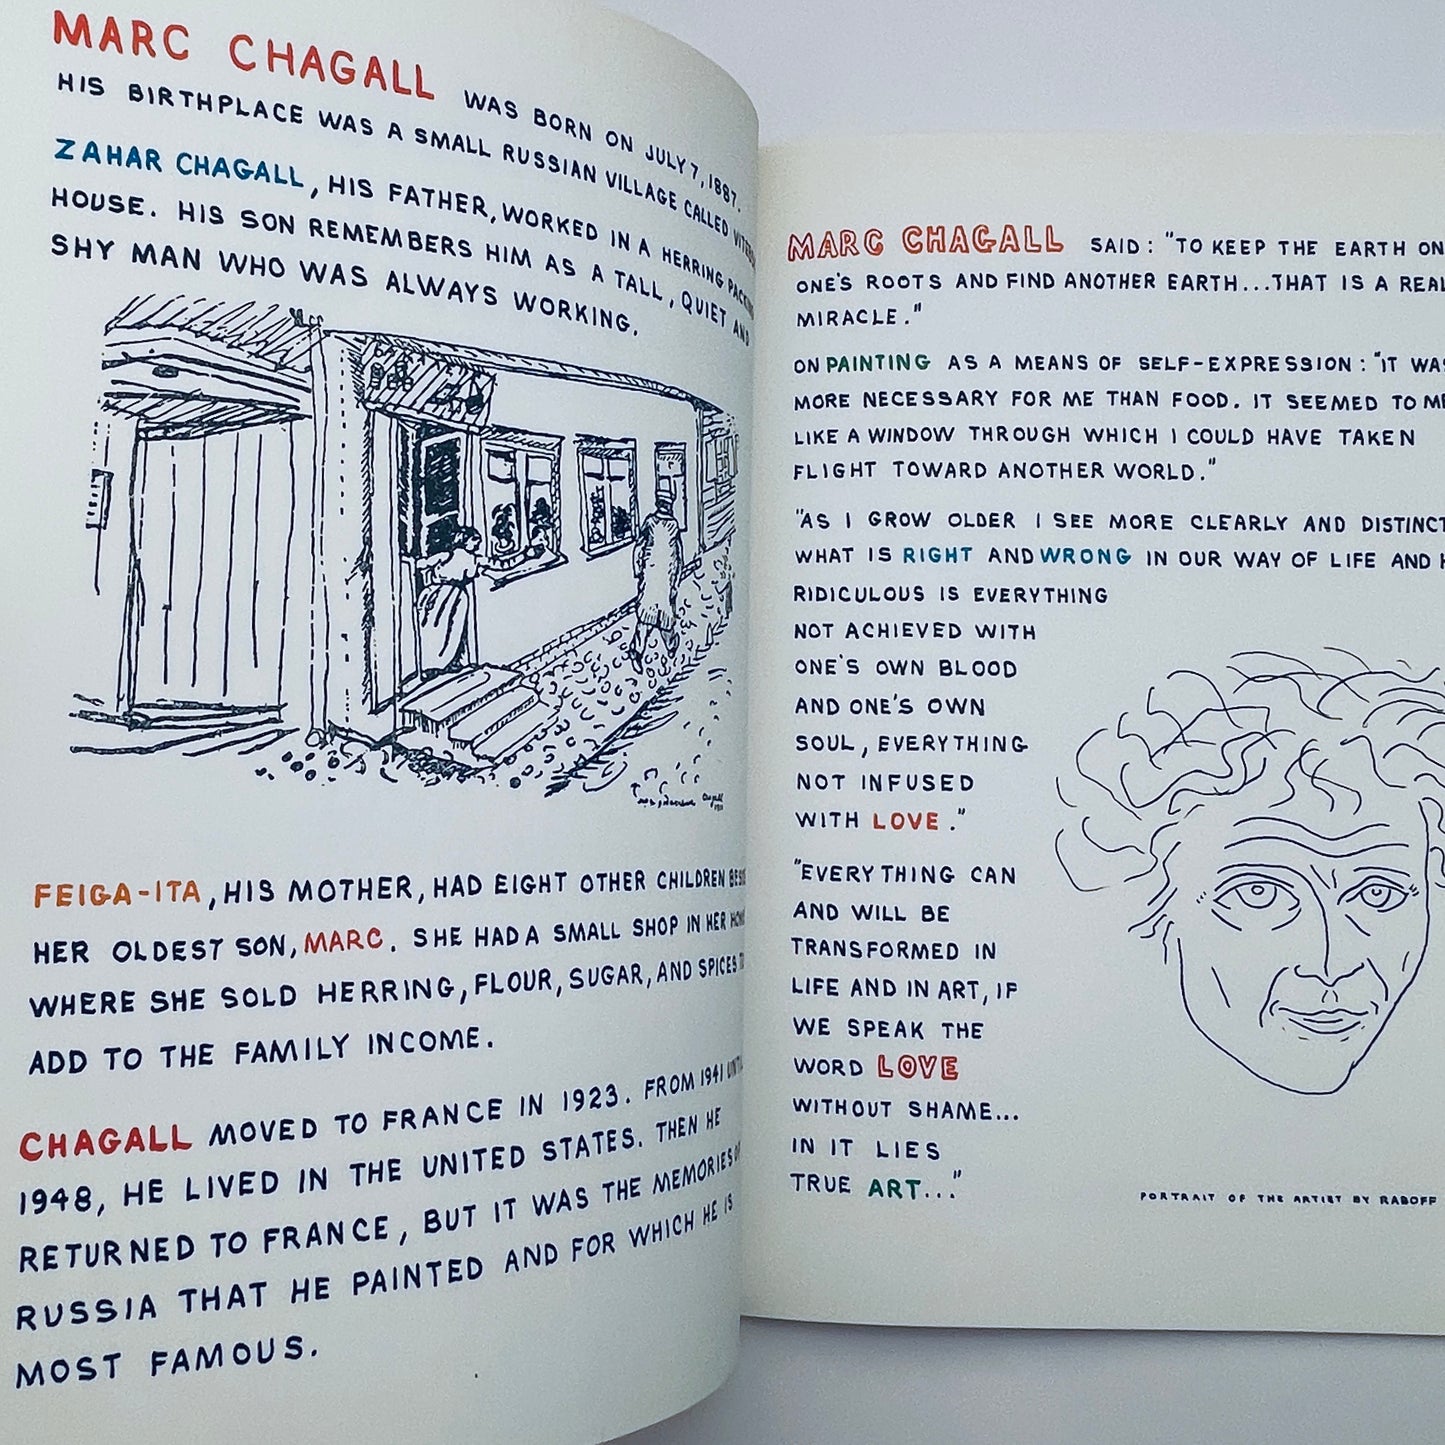 MARC CHAGALL WAS BORN ON JULY 7, 1887.
HIS BIRTHPLACE WAS A SMALL RUSSIAN VILLAGE CALLED
ZAHAR CHAGALL, HIS FATHER, WORKED IN A HERRING PACKING
HOUSE. HIS SON REMEMBERS HIM AS A TALL, QUIET AND
SHY MAN WHO WAS ALWAYS WORKING.
FEIGA-ITA, HIS MOTHER, HAD EIGHT OTHER CHILDREN
HER OLDEST SON, MARC. SHE HAD A SMALL SHOP IN HER
WHERE SHE SOLD HERRING, FLOUR, SUGAR, AND SPICES
ADD TO THE FAMILY INCOME.
CHAGALL MOVED TO FRANCE IN 1923. FROM 1941 UNTIL
1948, HE LIVED IN THE UNITED STATES. THEN HE
RETURNED TO FRANCE, BUT IT WAS THE MEMORIES OF
RUSSIA THAT HE PAINTED AND FOR WHICH HE IS
MOST FAMOUS.
MARC CHAGALL SAID: "TO KEEP THE EARTH ON
ONE'S ROOTS AND FIND ANOTHER EARTH...THAT IS A REAL
MIRACLE."
ON PAINTING AS A MEANS OF SELF-EXPRESSION: "IT WAS
MORE NECESSARY FOR ME THAN FOOD. IT SEEMED TO ME
LIKE A WINDOW THROUGH WHICH I COULD HAVE TAKEN
FLIGHT TOWARD ANOTHER WORLD."
"AS I GROW OLDER I SEE MORE CLEARLY AND DISTINCT
WHAT IS RIGHT AND WRONG IN OUR WAY OF LIFE AND
RIDICULOUS IS EVERYTHING
NOT ACHIEVED WITH
ONE'S OWN BLOOD
AND ONE'S OWN
SOUL, EVERYTHING
NOT INFUSED
WITH LOVE."
"EVERYTHING CAN
AND WILL BE
TRANSFORMED IN
LIFE AND IN ART, IF
WE SPEAK THE
WORD LOVE
WITHOUT SHAME...
IN IT LIES
TRUE ART..."
PORTRAIT OF THE ARTIST BY RABOFF